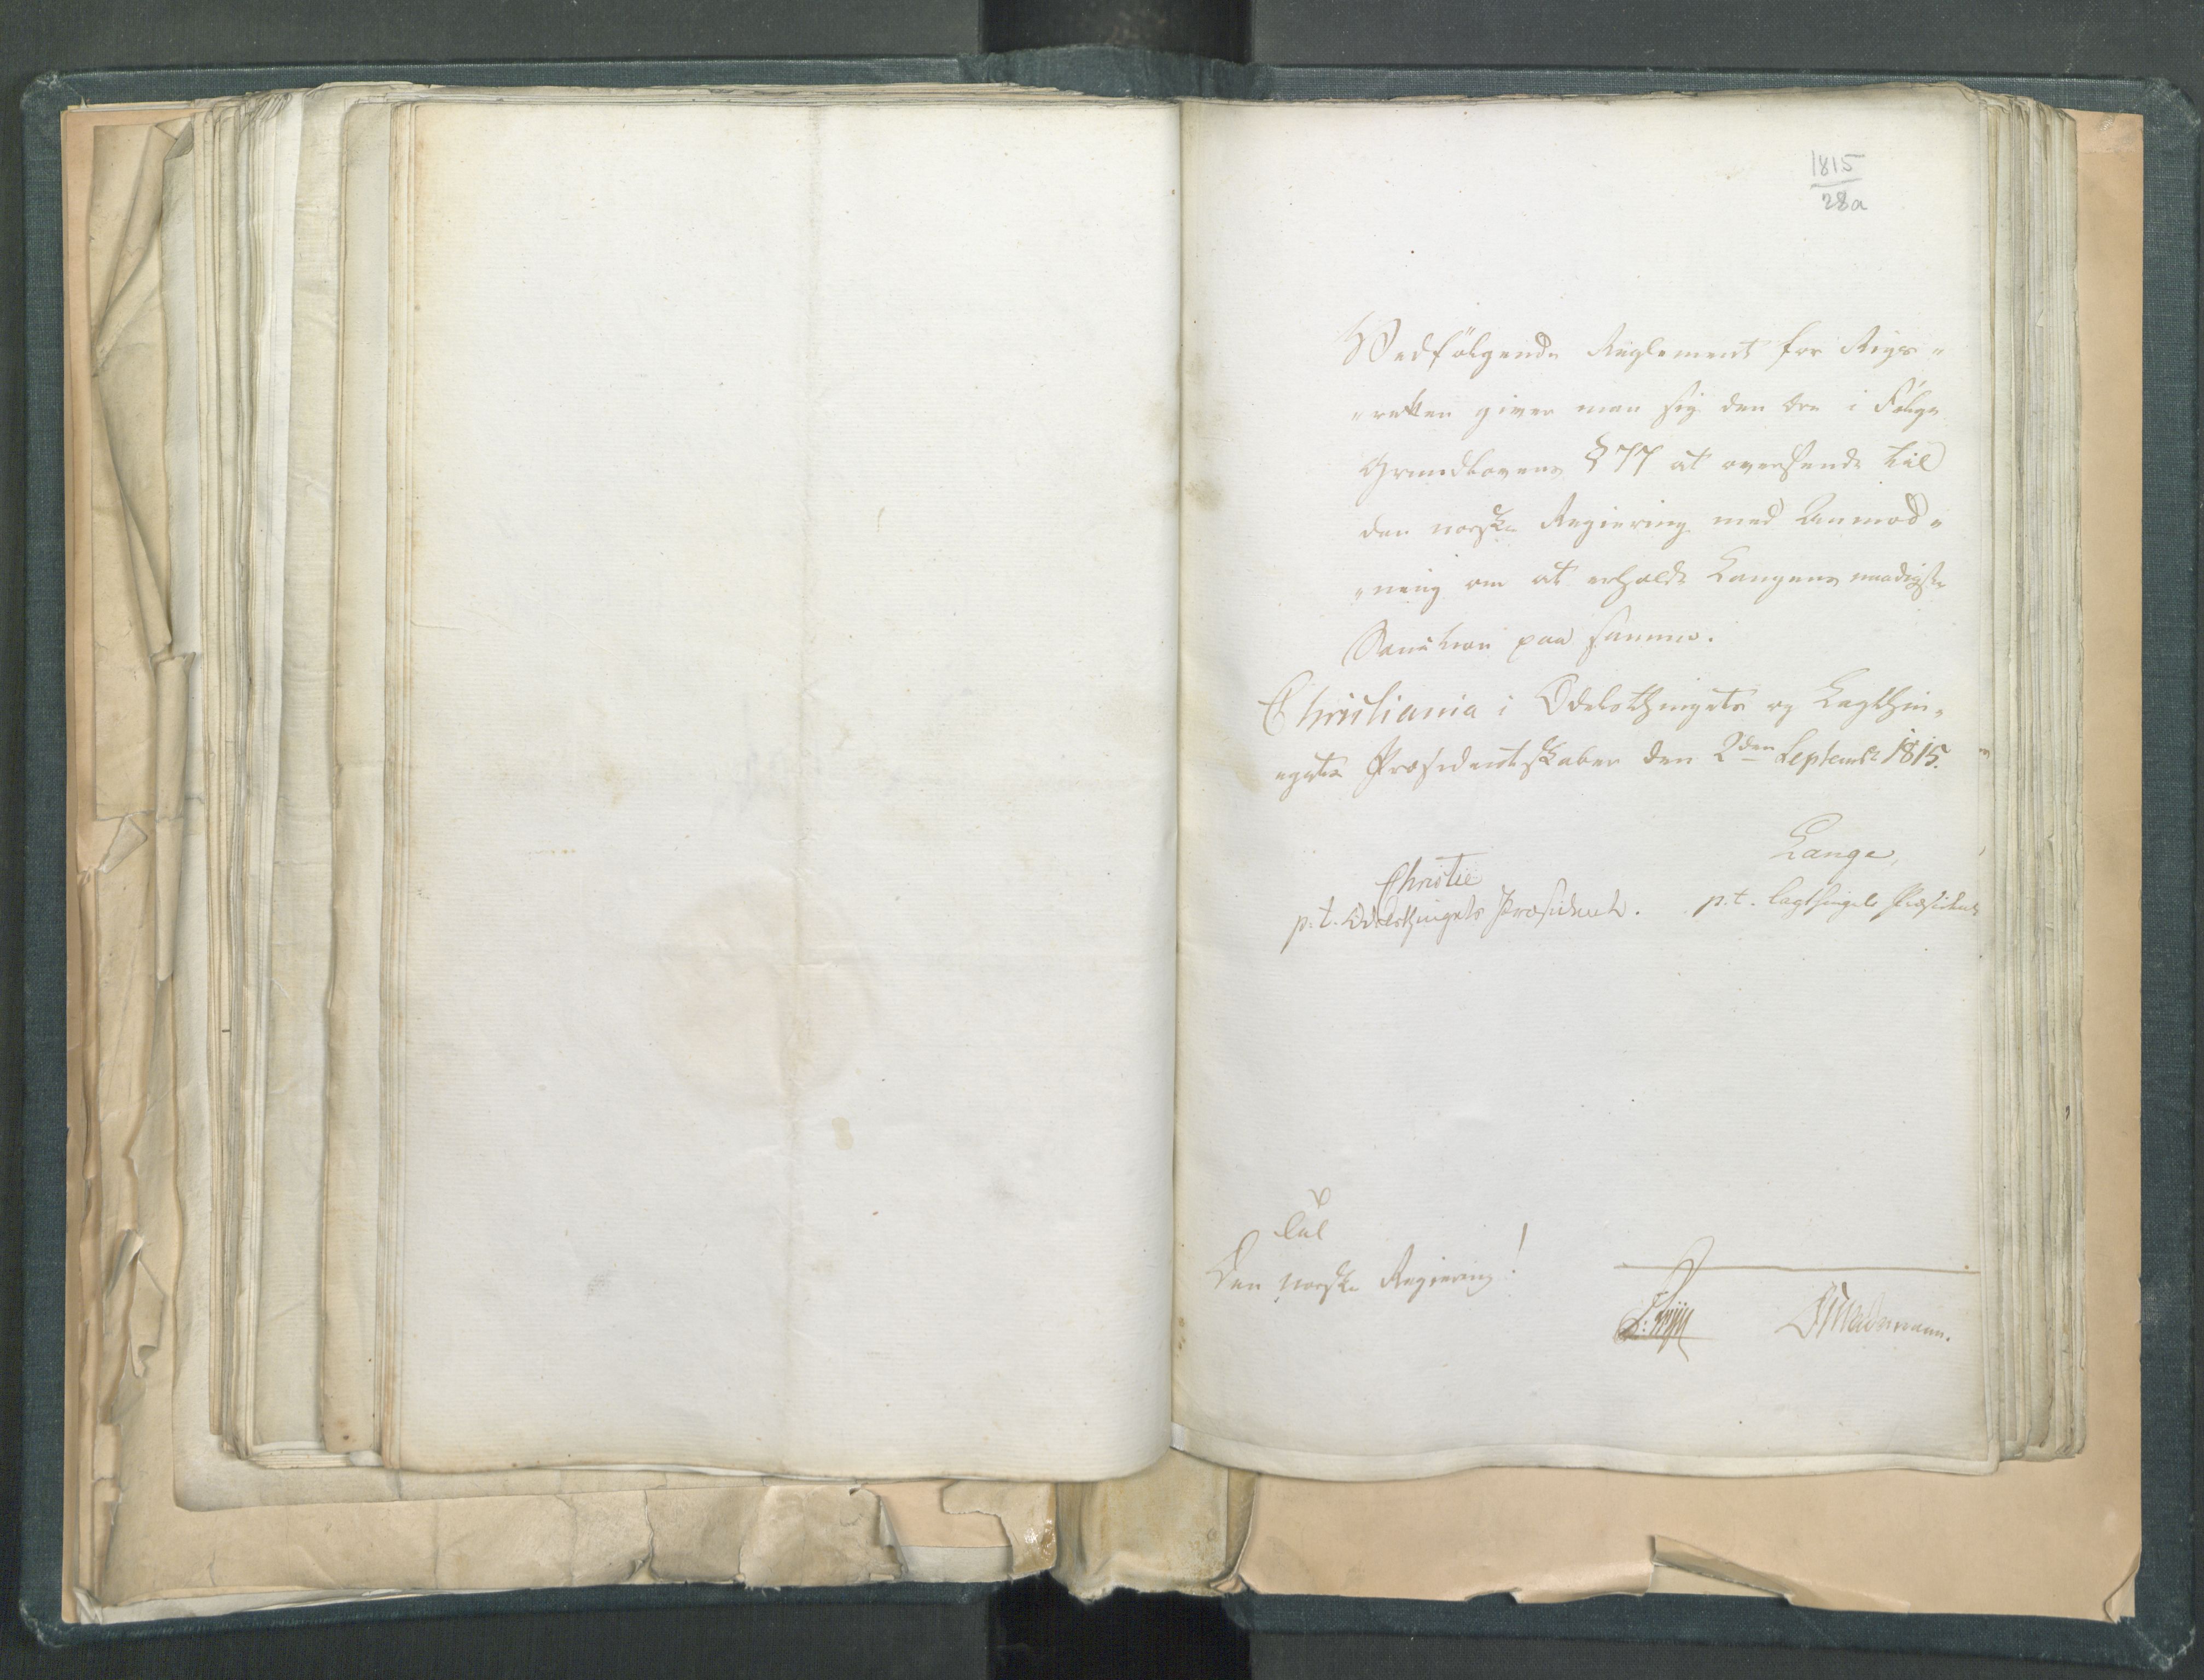 1815
28a
Vedfölgende Reglement for Rigs„
„retten giver man sig den Ære i Følge
Grundlovens § 77 at oversende til
den norske Regiering med Anmod„
„ning om at erholde Kongens naadigste
Sanction paa samme.
Christiania i Odelsthingets og Lagthin„
„gets Præsidentskaber den 2den Septembr 1815.
Lange,
Christie
p. t. Odelsthingets Præsident. p. t. Lagthingets Præsident
Til
Den norske Regiering!